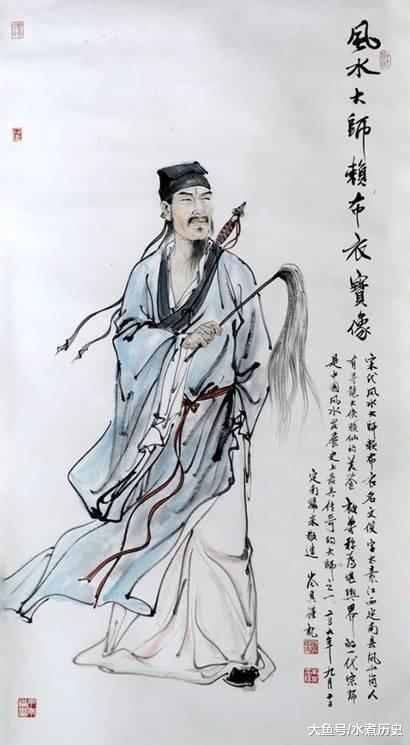 風水大師賴布衣寶像
宋代风水大师赖布衣名文俊字太素江西定南县凤山岗人
有寻龍大侠赖仙的美 称为堪輿界的一代宗师
是中國风水发展史上最具传奇的大师之一 年九月十日
定南 敬造
大鱼号/水煮历史